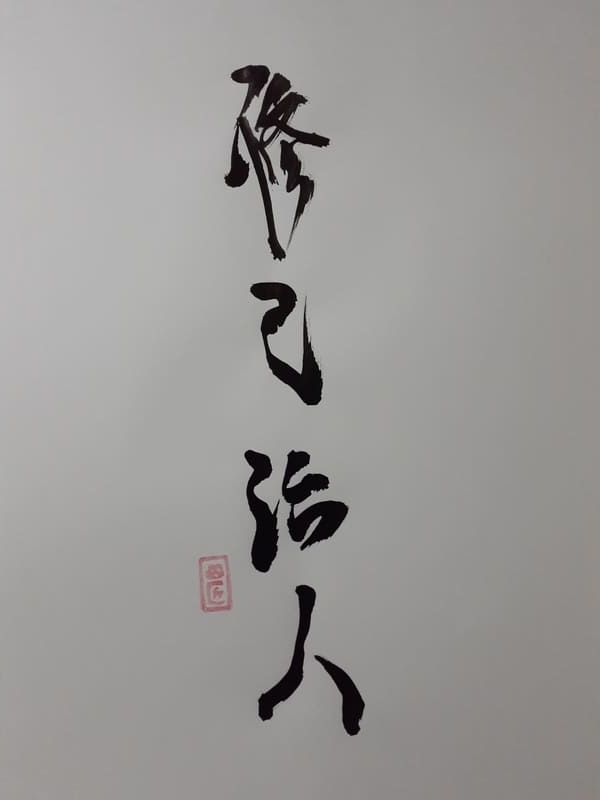 修己治人